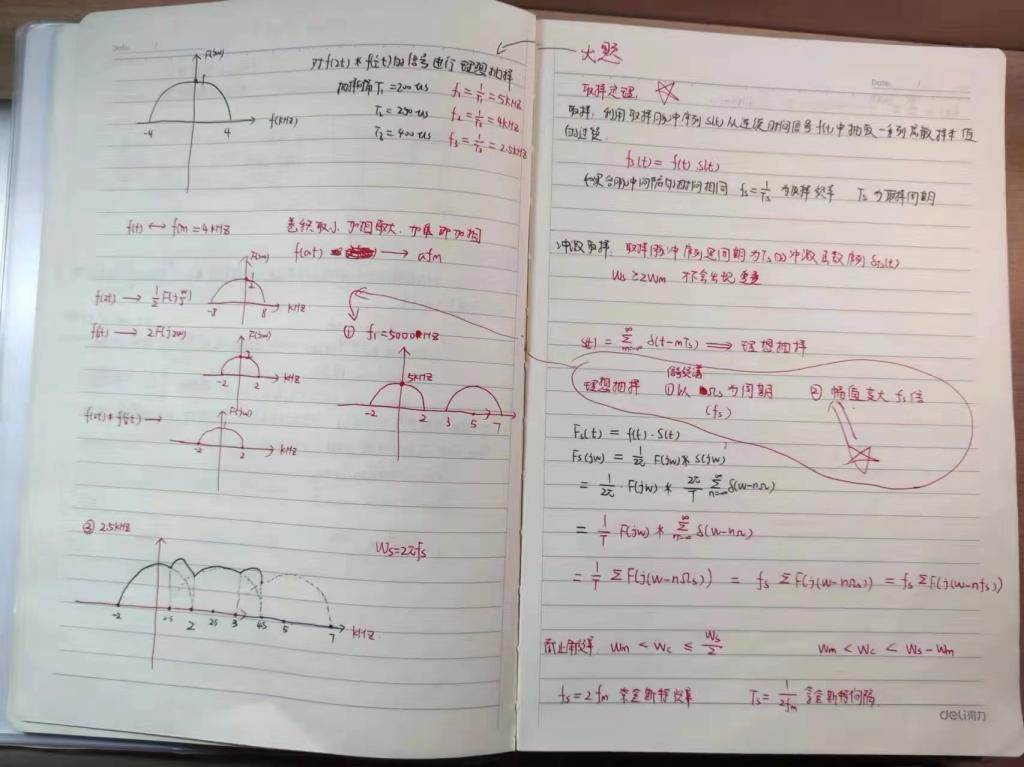 F(jw)
1
-4 4 f(kHz)
对 f(2t) * f(½t) 的信号进行理想抽样
抽样间隔 T₁ = 200us f₁ = 1/T₁ = 5kHz
T₂ = 250us f₂ = 1/T₂ = 4kHz
T₃ = 400us f₃ = 1/T₃ = 2.5kHz
f(t) ↔ fm = 4kHz 卷积取小, 加相取大, 加乘即加相
f(at) → afm
F(jw)
f(2t) → ½F(j w/2) ½ -8 8 kHz
① f₁ = 5000Hz
f(½t) → 2F(j2w) F(jw) 2 -2 2 kHz
5kHz
-2 2 3 5 7
f(2t) * f(½t) → F(jw) 1 -2 2 kHz
③ 2.5kHz
Ws = 2πfs
-2 0.5 2 2.5 3 4.5 5 7 kHz
大题
Date: /
取样定理 ☆
取样: 利用取样脉冲序列 S(t) 从连续时间信号 f(t) 中抽取一系列离散样本值
的过程
fs(t) = f(t) S(t)
如果各脉冲间隔的时间相同 fs = 1/Ts 为取样频率 Ts 为取样周期
冲激取样: 取样脉冲序列是周期为 Ts 的冲激函数序列 δTs(t)
Ws ≥ 2Wm 不会出现重叠
S(t) = ∑ δ(t-mTs) ⟹ 理想抽样
理想抽样 ① 以 Ωs 为周期 ② 幅值变大 fs 倍
(fs)
Fs(t) = f(t) · S(t)
Fs(jw) = 1/2π F(jw) * S(jw)
= 1/2π · F(jw) * 2π/T ∑ δ(w-nΩ)
= 1/T F(jw) * ∑ δ(w-nΩ)
= 1/T ∑ F(j(w-nΩs)) = fs ∑ F(j(w-nΩs)) = fs ∑ F(j(w-nfs))
截止角频率: Wm < Wc ≤ Ws/2 Wm < Wc < Ws - Wm
fs = 2fm 奈奎斯特频率 Ts = 1/2fm 奈奎斯特间隔
deli得力